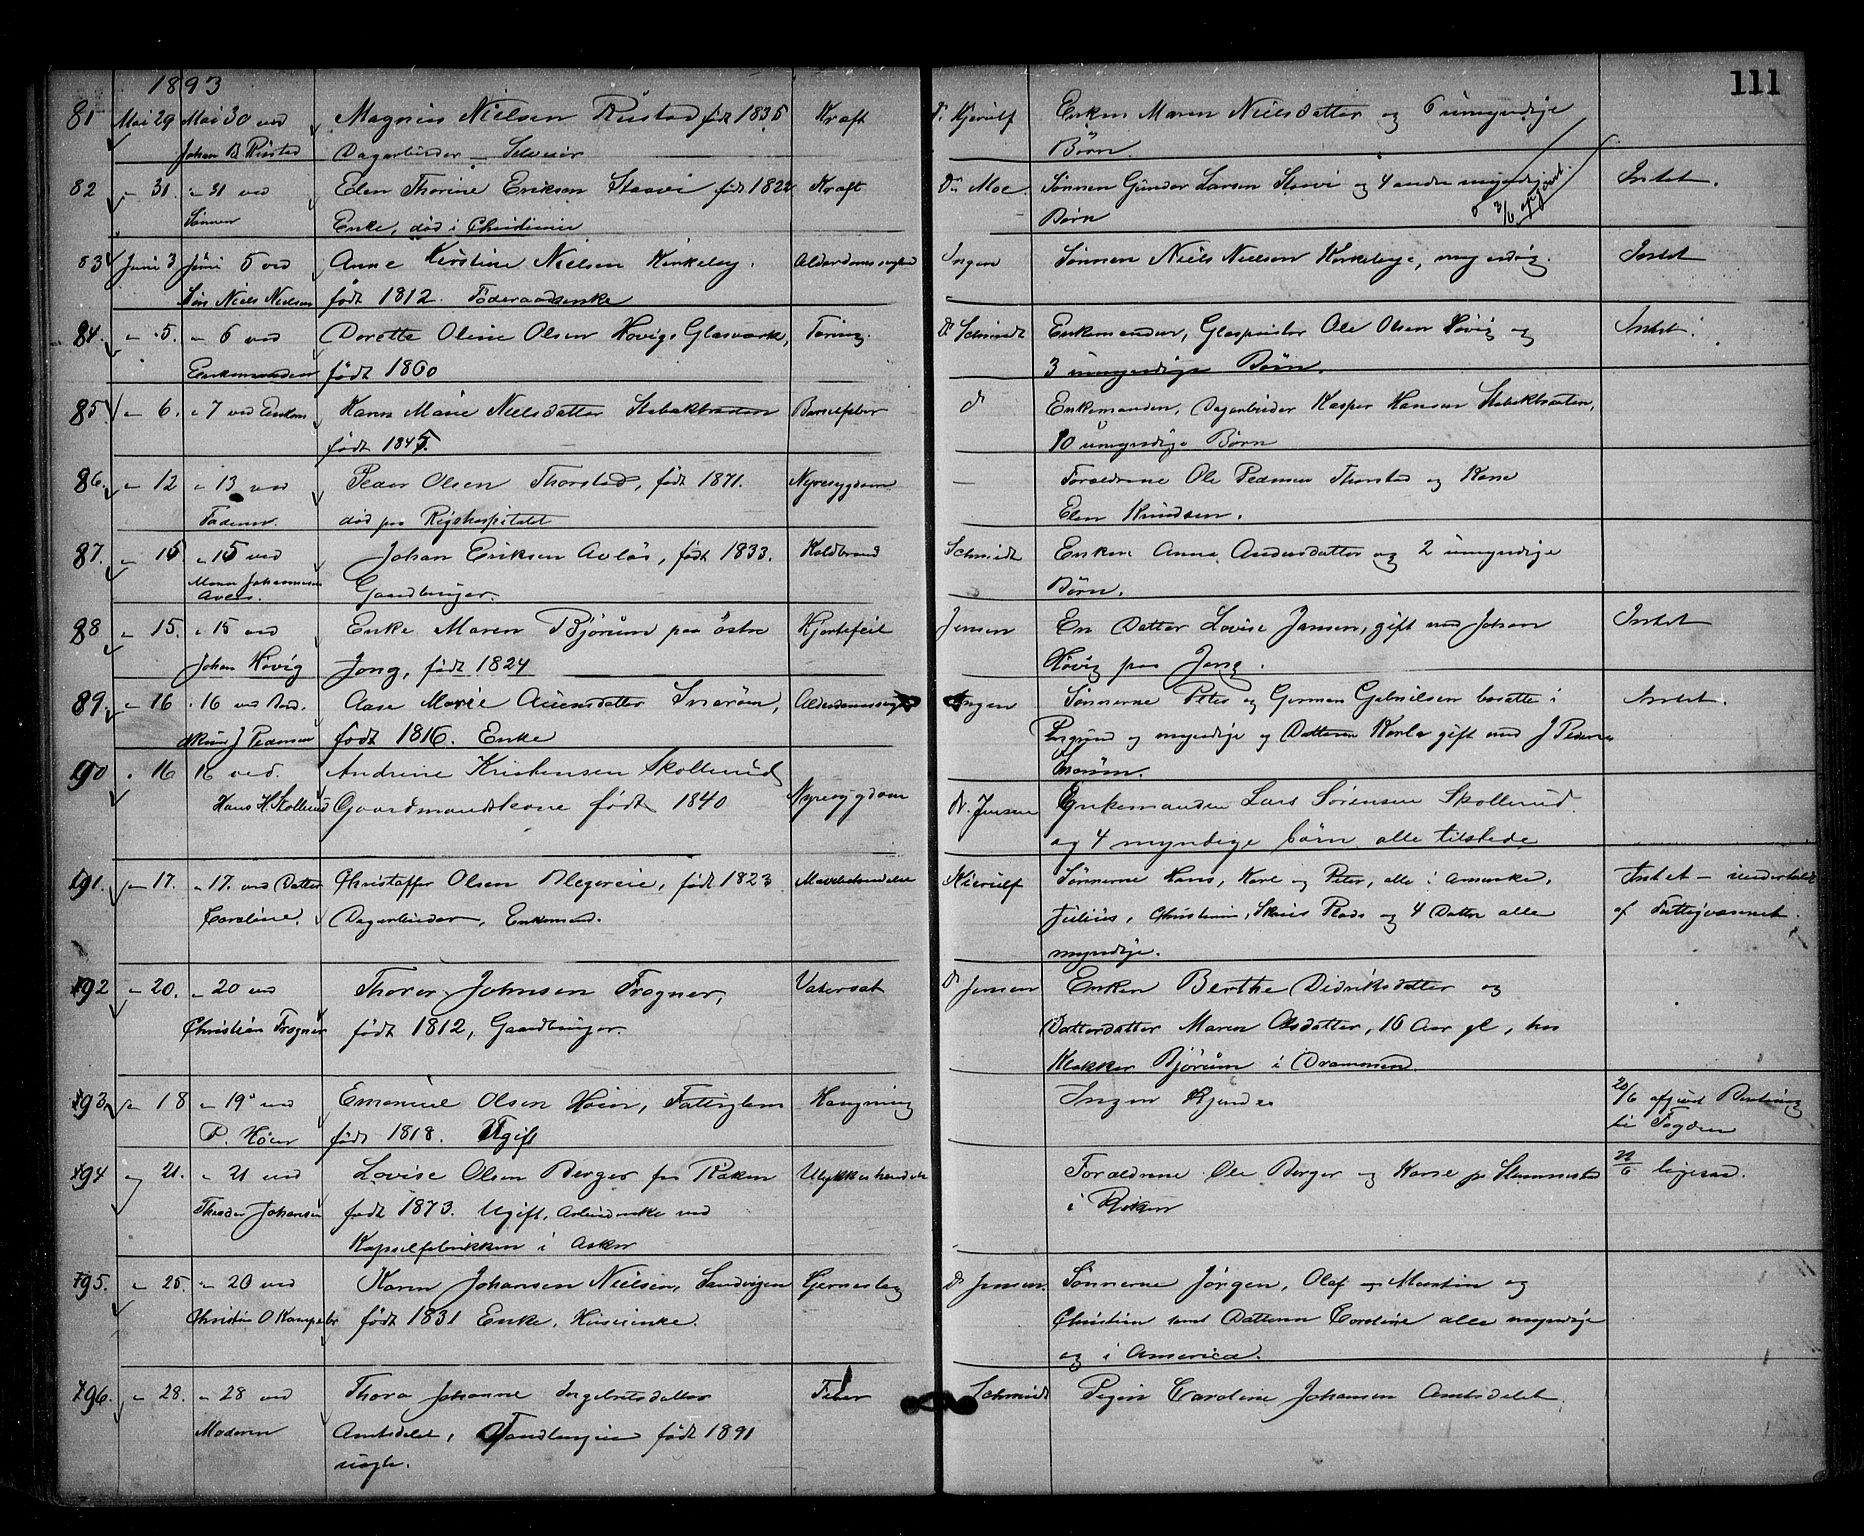 1893
111
81 Mai 29 Mai 30 ved Magnus Nielsen Rustad født 1835 Kraft Dr. Kjerulf Enken Maren Nielsdatter og 6 umyndige
Johan B Rustad Dagarbeider Børn.
82 " 31 " 31 ved Elen Thorine Eriksen Staavi født 1822 Kraft Dr. Moe Sønnen Gunder Larsen Staavi og 4 andre myndige Intet.
Sønnen Enke, død i Christiania Børn
83 Juni 3 Juni 5 ved Anne Kirstine Nielsen Kirkeby. Alderdomssvaghed Ingen Sønnen Niels Nielsen Kirkeby, myndig. Intet
Søn Niels Nielsen født 1812. Føderaadsenke
84. " 5. " 6 ved Dorette Oline Olsen Høvigs Glasværk, Tæring. Dr Schmidt Enkemanden, Glaspuster Ole Olsen Høvig og Intet.
Enkemanden født 1860 3 umyndige Børn.
85. " 6. " 7 ved Enkem Karen Marie Nielsdatter Stabækbraaten Barselfeber d Enkemanden, Dagarbeider Kasper Hansen Stabækbraaten,
født 1845. 10 umyndige Børn
86. " 12 " 13 ved Peder Olsen Thorstad, født 1871. Nyresygdom — Forældrene Ole Pedersen Thorstad og Kone
Faderen. død paa Rigshospitalet Elen Knudsen.
87. " 15. " 15 ved Johan Eriksen Avløs, født 1833. Koldbrand Schmidt Enken Anne Andersdatter og 2 umyndige
Avløs. Gaardbruger. Børn.
88 " 15. " 15 ved Enke Maren Bjørum paa østre Hjertefeil Jensen En Datter Lovise Jansen, gift med Johan Intet
Johan Høvig Jong, født 1824 Høvig paa Jong.
89. " 16 " 16 ved Aase Marie Snarøen, Alderdomssvagh Ingen Sønnerne Peter og Herman Gabrielsen bosatte i Intet.
J Pedersen født 1816. Enke og myndige og Datteren Karla gift med J Pedersen
Snarøen.
90 " 16 16 ved. Andrine Kristensen Skollerud Nyresygdom Dr. Jensen Enkemanden Lars Sørensen Skollerud
Hans H. Skollerud Gaardmandskone født 1840 og 4 myndige børn alle tilstede
91. " 17. " 17. ved Datter Christoffer Olsen Blegereie, født 1823 Kierulf Sønnerne Hans, Karl og Peter, alle i Amerika, Intet — underholdt
Caroline. Dagarbeider, Enkemand. Julius, Christian, og 4 Døttre alle af Fattigvæsenet.
myndige.
92 " 20. " 20 ved Thorer Johnsen Frogner, Vatersot Dr Jensen Enken Berthe Didriksdatter og
Christian Frogner født 1812, Gaardbruger. Datterdatter Maren Olsdatter, 16 Aar gl, hos
Klokker Bjørum i Drammen
93 " 18 " 19 ved Emanuel Olsen Høien, Fattiglem Hængning Ingen Kjendes 20/6 afgivet Beretning
P. Høien født 1818. Ugift til Fogden
94 " 21. " 21 ved Lovise Olsen Berger fra Røken Ulykkeshændelse Forældrene Ole Berger og Kone paa Slemmestad 22/6 ligesaa.
Johansen født 1873. Ugift, Arbeiderske ved i Røken
Kapselfabrikken i Asker
95. " 25. " 20 ved Karen Johansen Nielsen, Sandvigen Hjerneslag Dr Jensen. Sønnerne Jørgen, Olaf og Martin og
Christian O Kampebr født 1831 Enke, Huseierske. Christian samt Datteren Caroline alle myndige
og i America.
96. " 28. " 28 ved Thora Johanne Ingebretsdatter Feber Schmidt Pigen Caroline Johansen Amtsdelet.
Moderen Amtsdelet, født 1891
uægte.